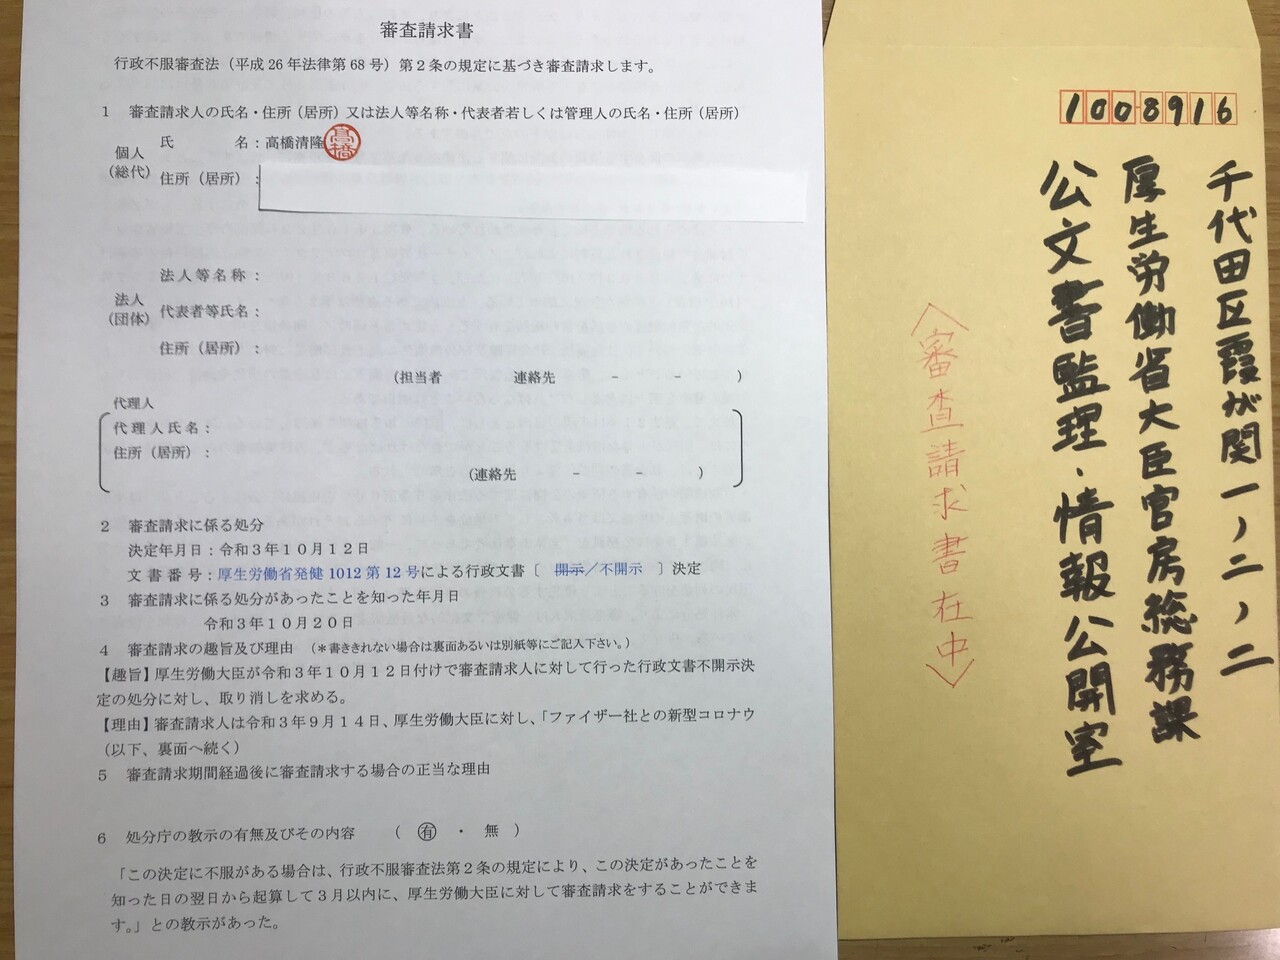 審査請求書
行政不服審査法（平成26年法律第68号）第２条の規定に基づき審査請求します。
１　審査請求人の氏名・住所（居所）又は法人等名称・代表者若しくは管理人の氏名・住所（居所）
個人
（総代）
氏　　　名：高橋清隆
高橋
住所（居所）：
法人
（団体）
法人等名称：
代表者等氏名：
住所（居所）：
（担当者　　　連絡先　　－　　－　　）
代理人
代理人氏名：
住所（居所）：
（連絡先　　－　　－　　）
２　審査請求に係る処分
決定年月日：令和３年１０月１２日
文書番号：厚生労働省発健1012第12号による行政文書〔　開示／不開示　〕決定
３　審査請求に係る処分があったことを知った年月日
令和３年１０月２０日
４　審査請求の趣旨及び理由　（＊書ききれない場合は裏面あるいは別紙等にご記入下さい。）
【趣旨】厚生労働大臣が令和３年１０月１２日付けで審査請求人に対して行った行政文書不開示決
定の処分に対し、取り消しを求める。
【理由】審査請求人は令和３年９月１４日、厚生労働大臣に対し、「ファイザー社との新型コロナウ
（以下、裏面へ続く）
５　審査請求期間経過後に審査請求する場合の正当な理由
６　処分庁の教示の有無及びその内容　　（　㊒　・　無　）
「この決定に不服がある場合は、行政不服審査法第２条の規定により、この決定があったことを
知った日の翌日から起算して３月以内に、厚生労働大臣に対して審査請求をすることができま
す。」との教示があった。
1008916
千代田区霞が関一ノ二ノ二
厚生労働省大臣官房総務課
公文書監理・情報公開室
〈審査請求書在中〉